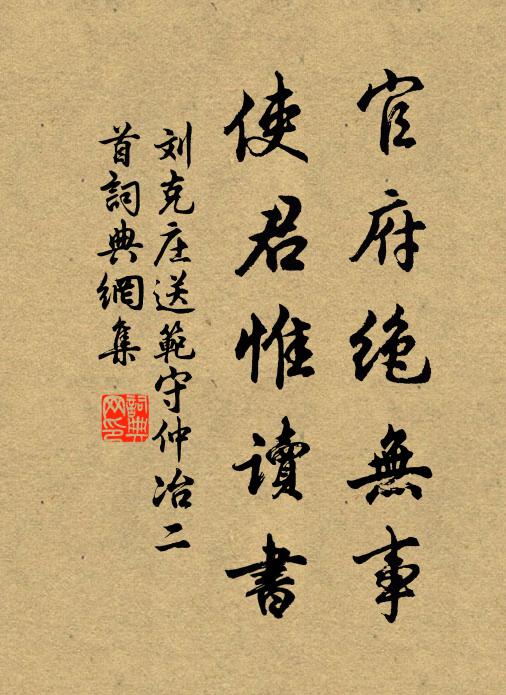 官府绝無事
使君惟读書
刘克庄送範守仲冶二
首詞典網集
詞典
网印